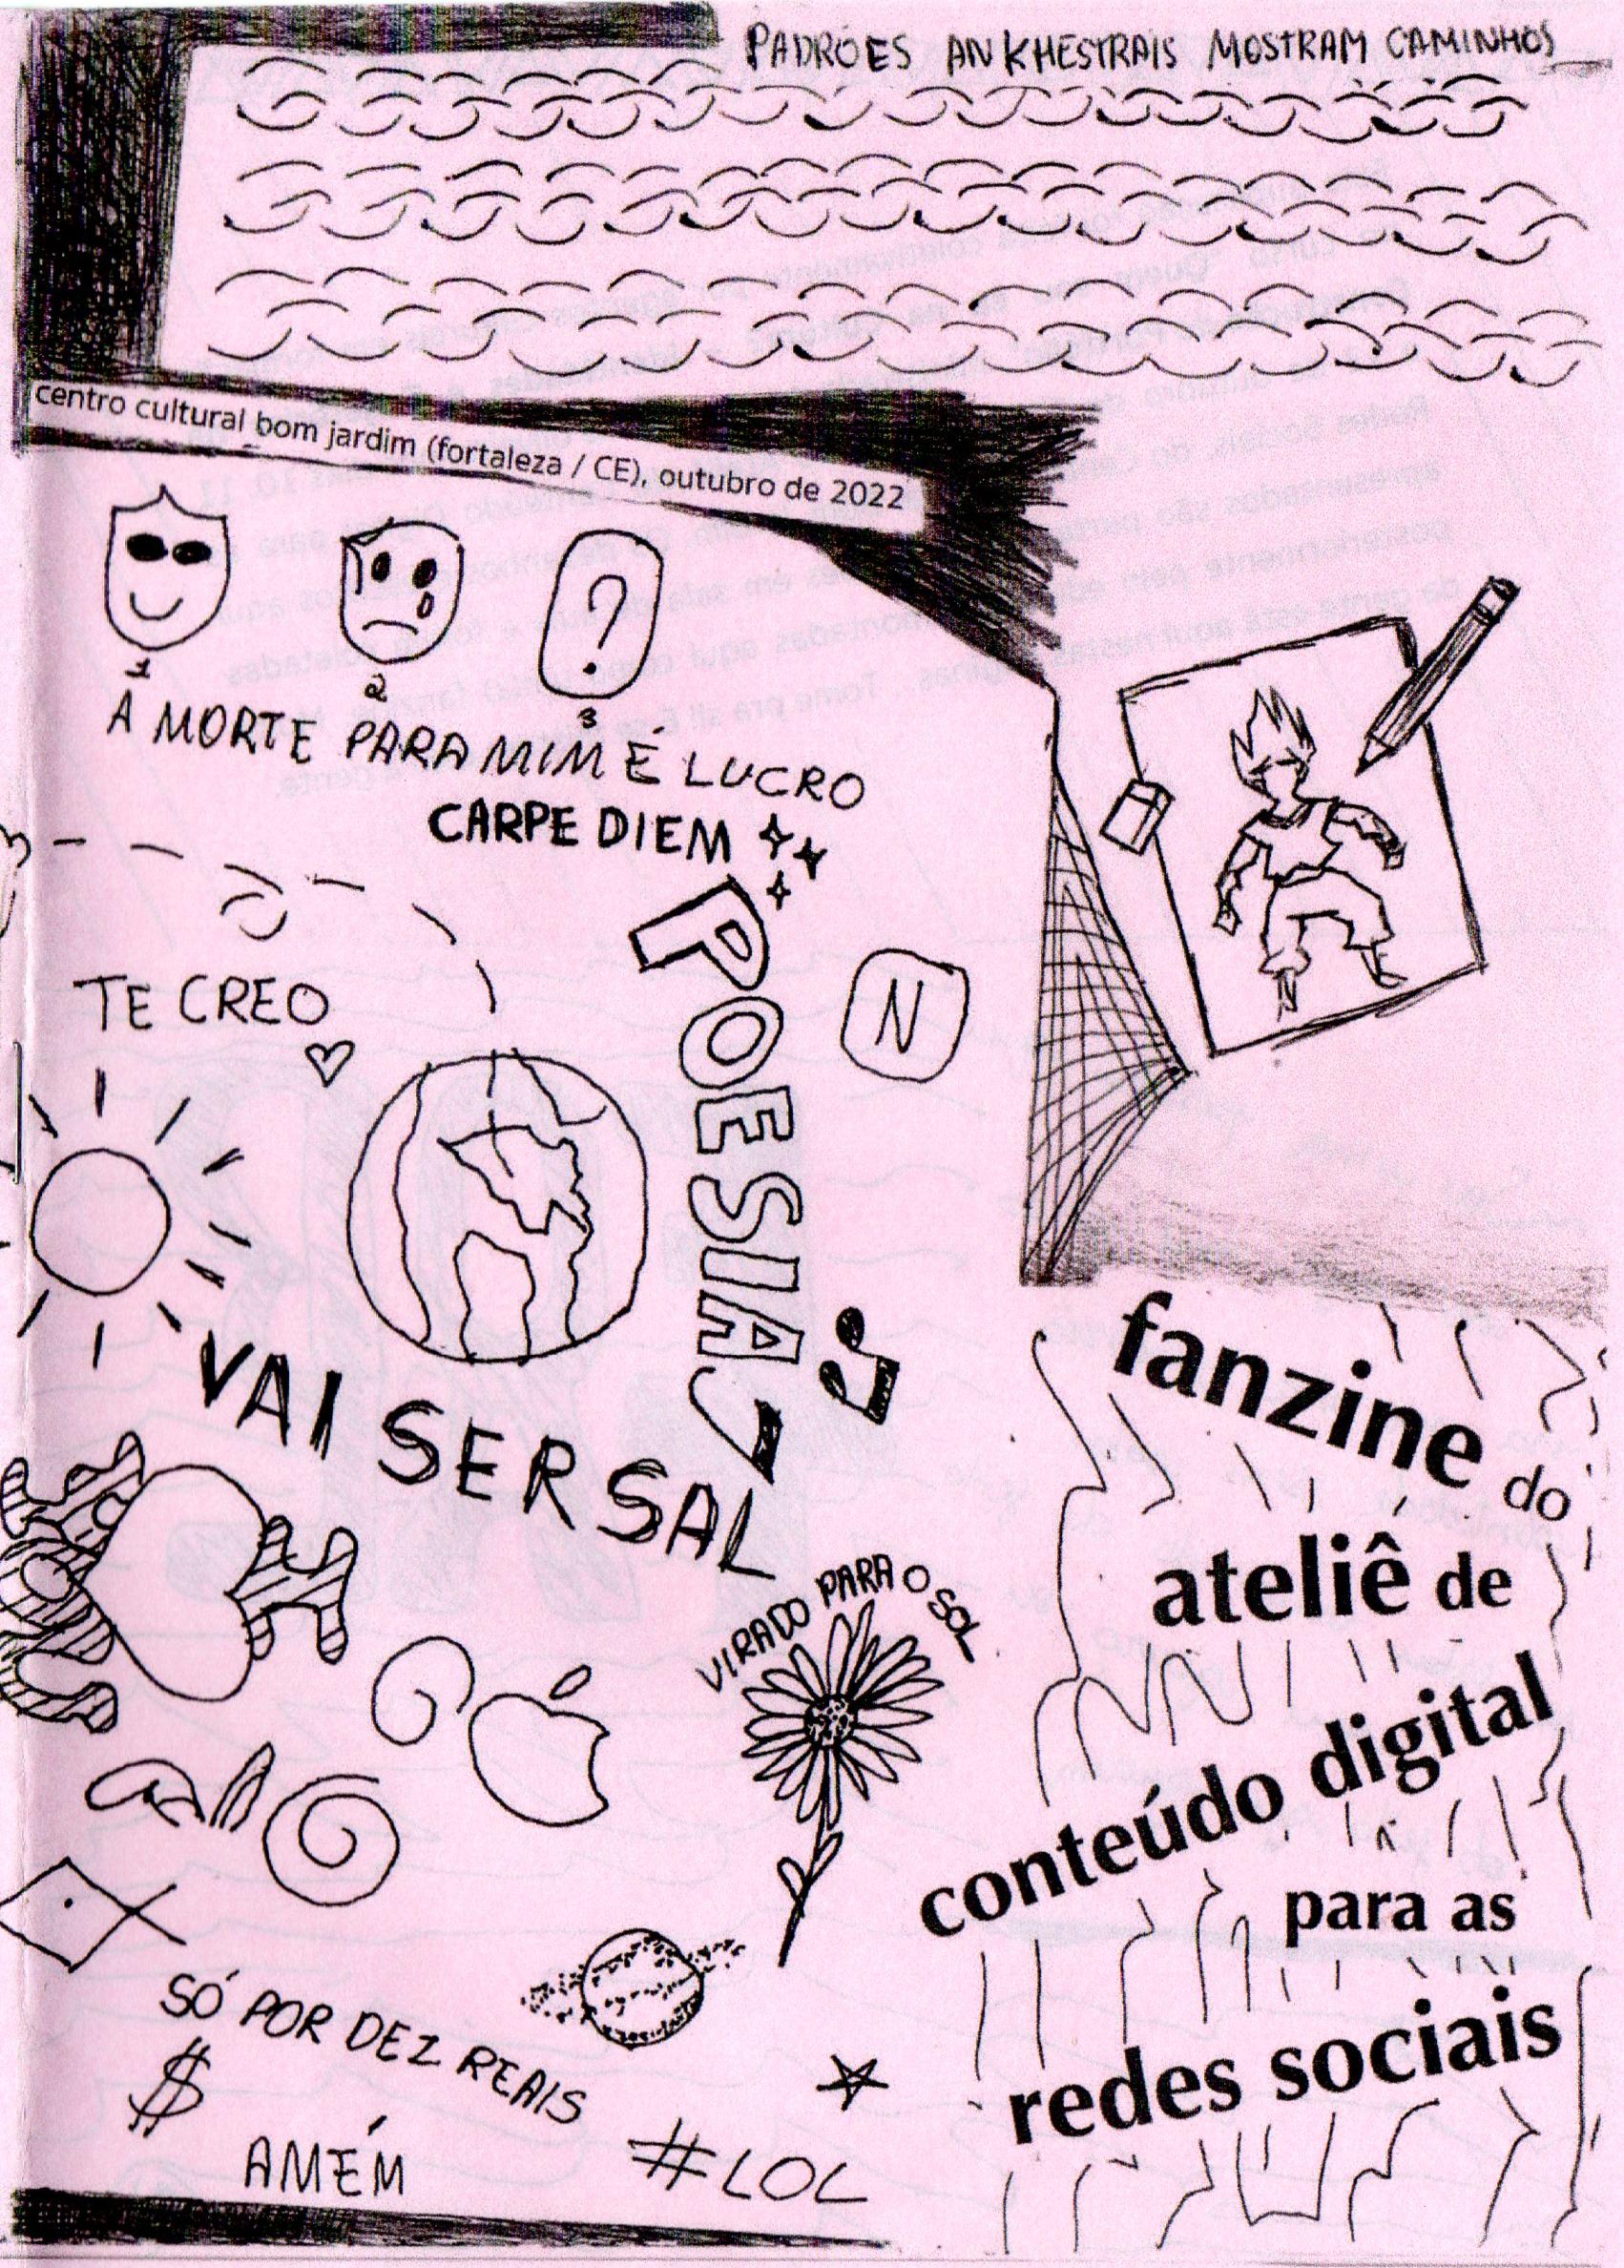 PADRÕES ANKHESTRAIS MOSTRAM CAMINHOS
centro cultural bom jardim (fortaleza / CE), outubro de 2022
?
1
2
3
A MORTE PARA MIM É LUCRO
CARPE DIEM
POESIA
N
TE CREO
VAI SER SAL
VIRADO PARA O SOL
SÓ POR DEZ REAIS
$
AMÉM
#LOL
fanzine do
ateliê de
conteúdo digital
para as
redes sociais